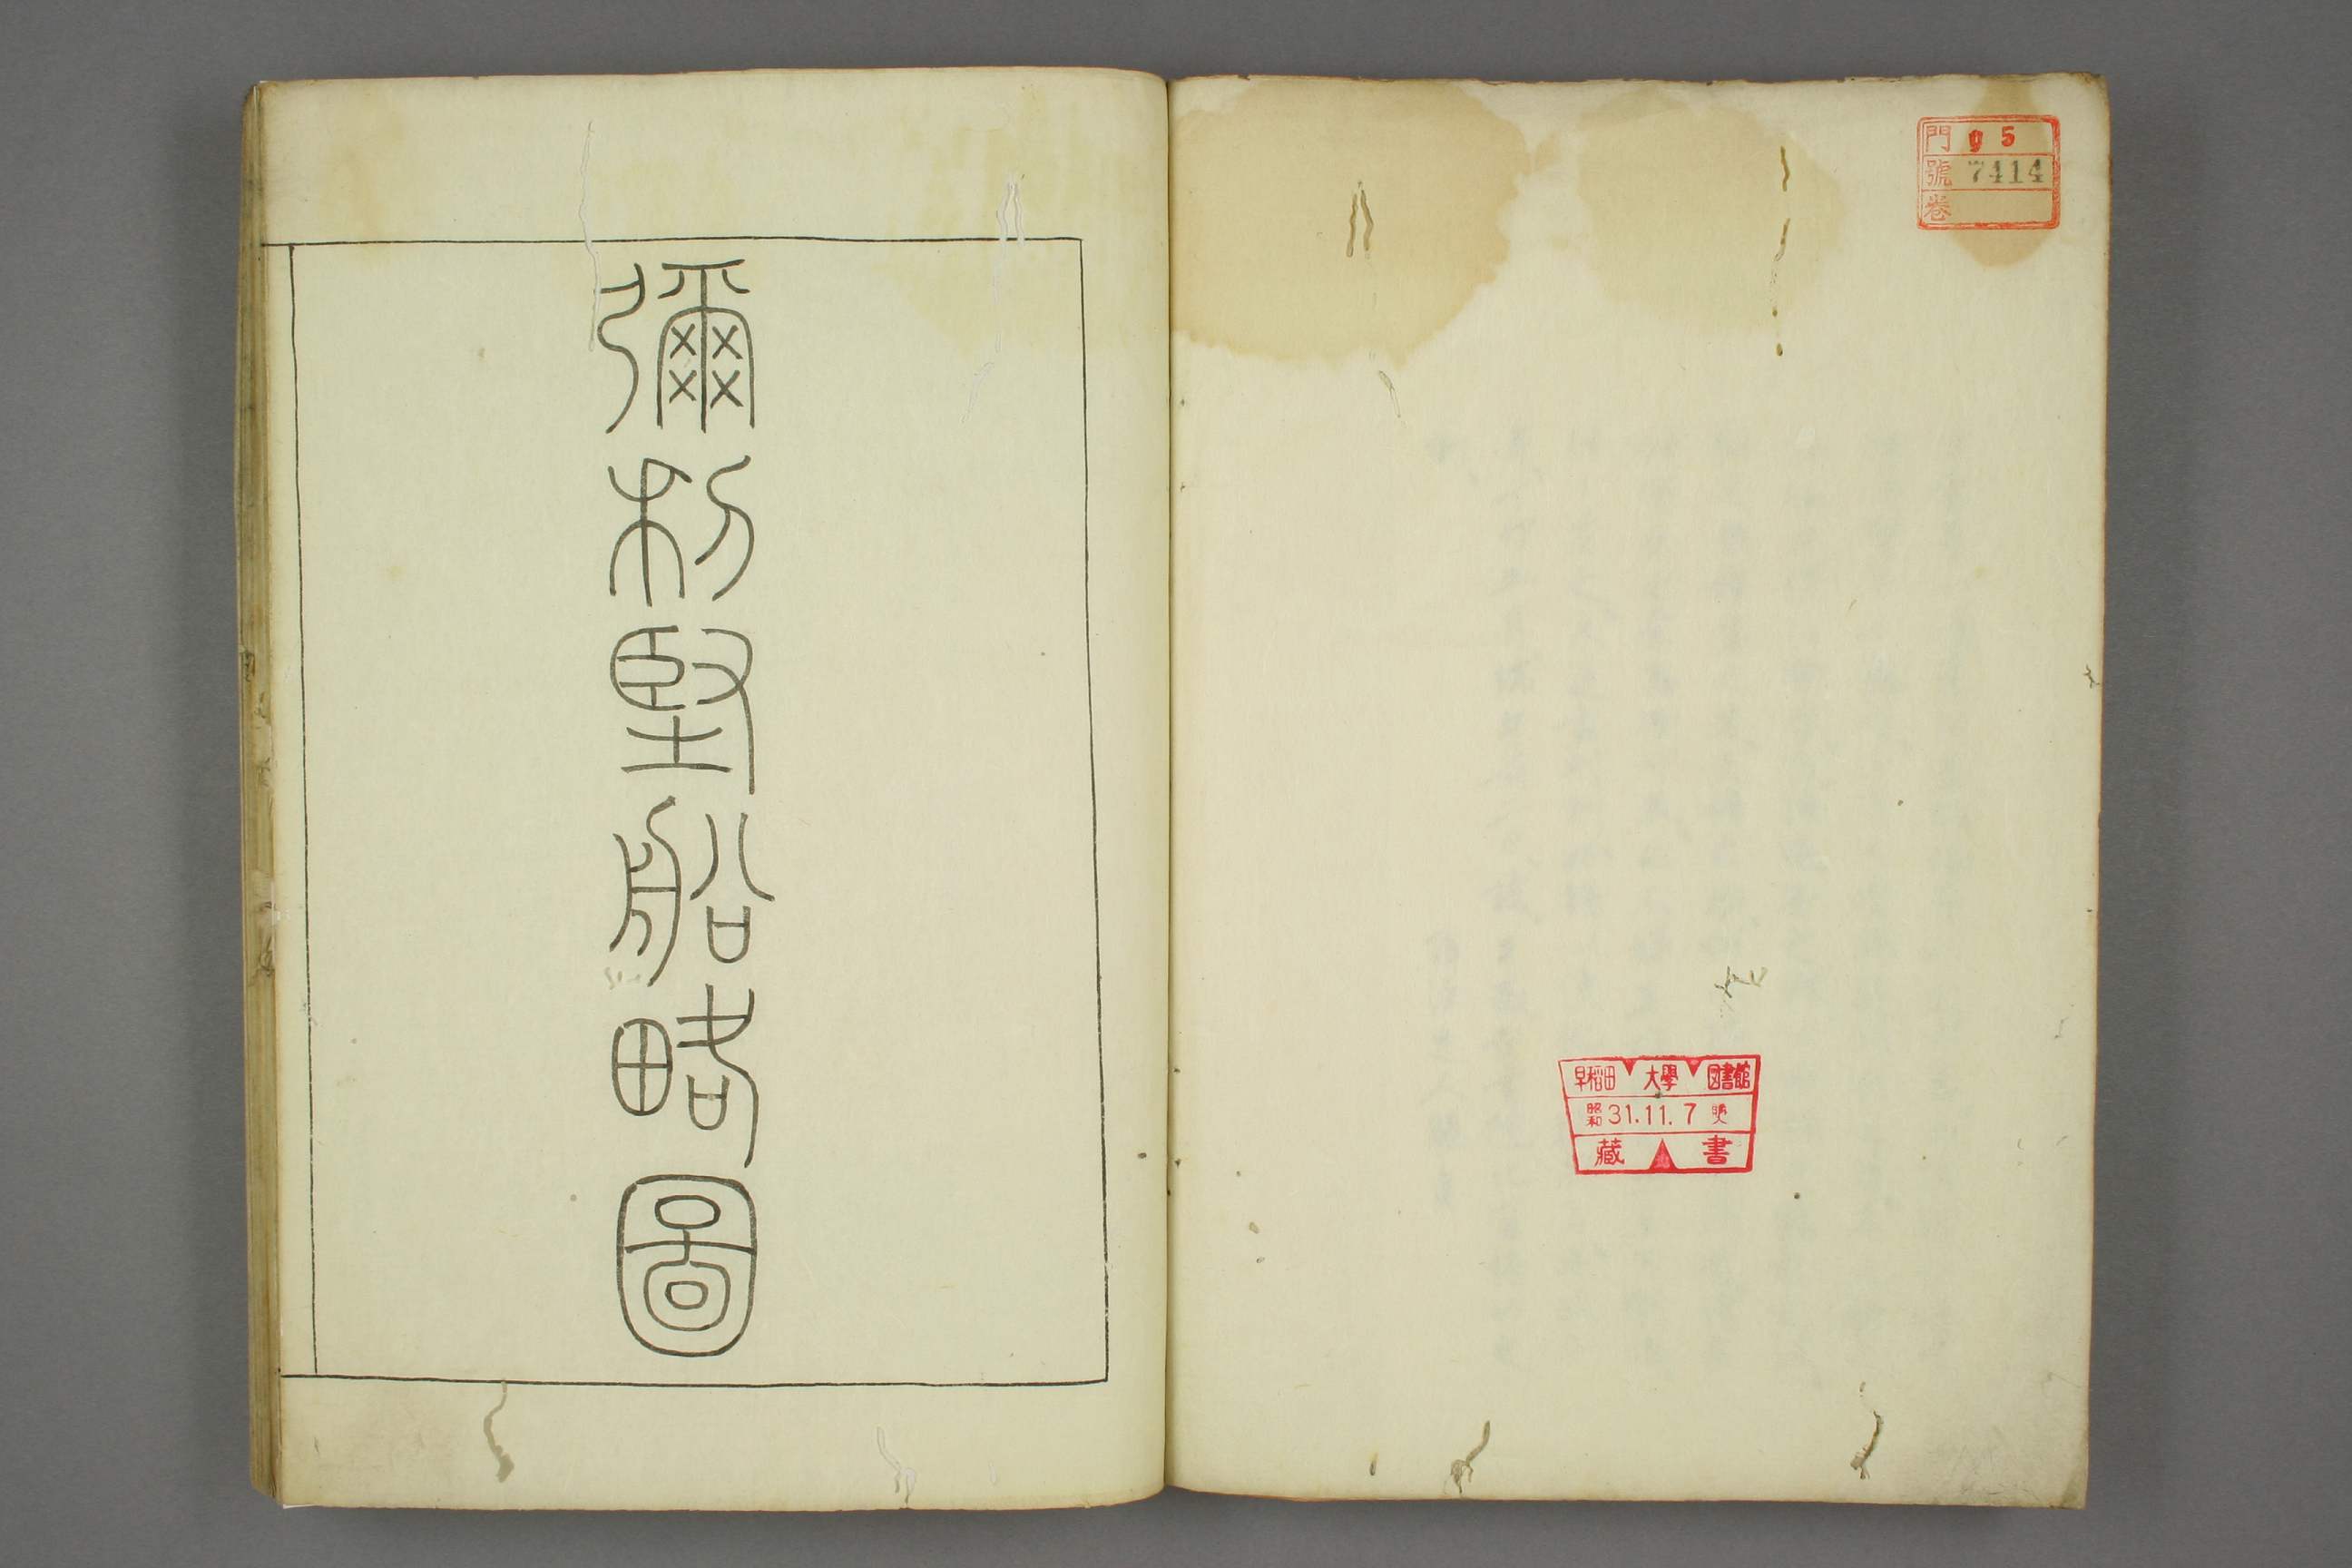 門 g 5
號 7414
卷
早稻田大學圖書館
昭和 31.11.7
藏書
彌利堅船略圖